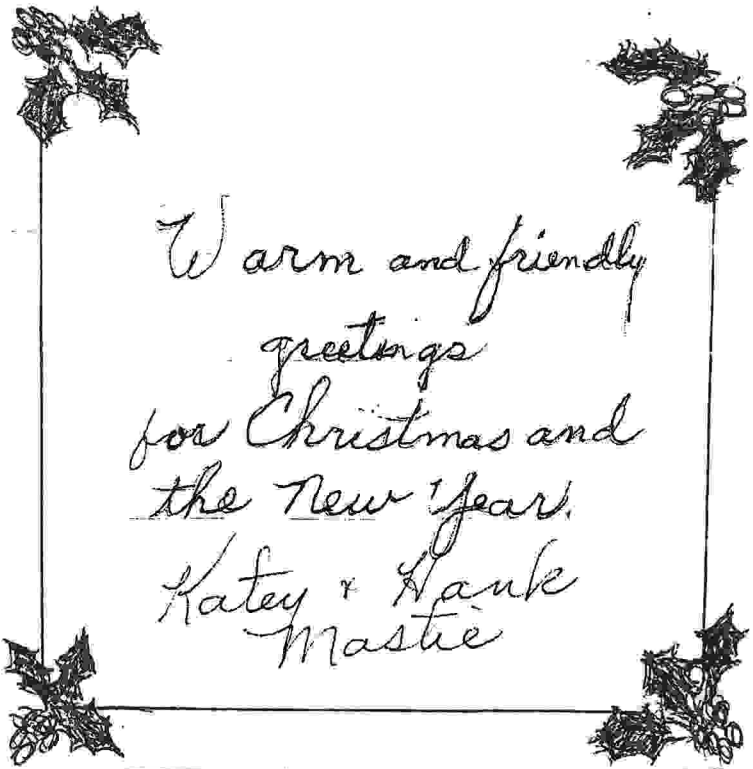 Warm and friendly
greetings
for Christmas and
the New Year.
Katey & Hank
Mastie